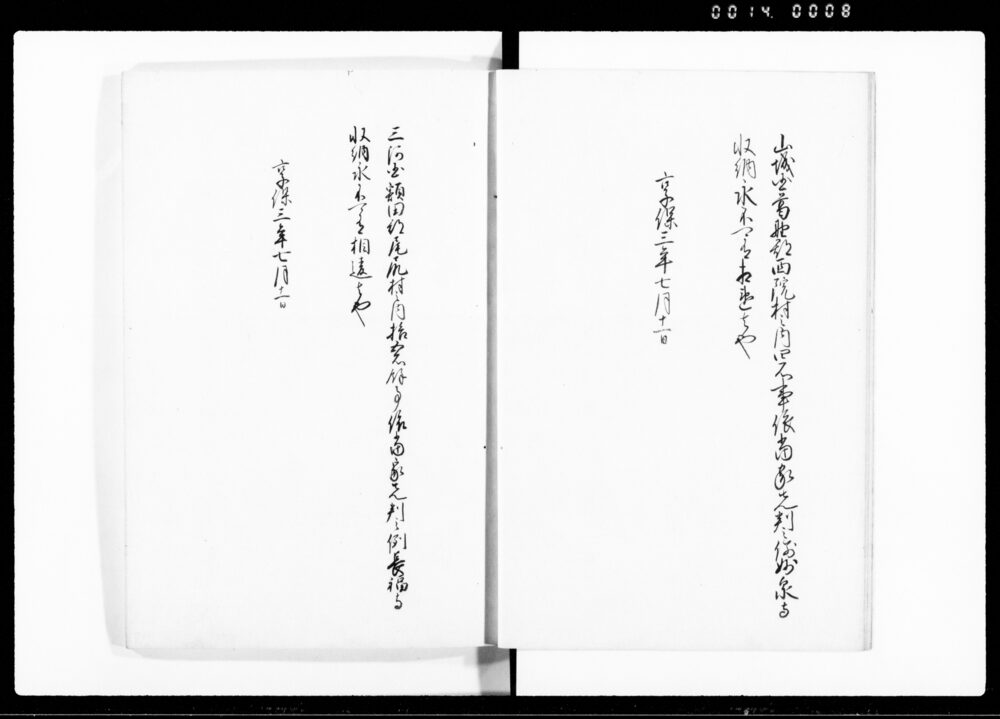 0014.0008
山城国葛野郡西院村之内四石事依当家先判之例妙泉寺
収納永不可有相違者也
享保三年七月十一日
三河国額田郡尾尻村内拾石餘事依当家先判之例長福寺
収納永不可有相違者也
享保三年七月十一日